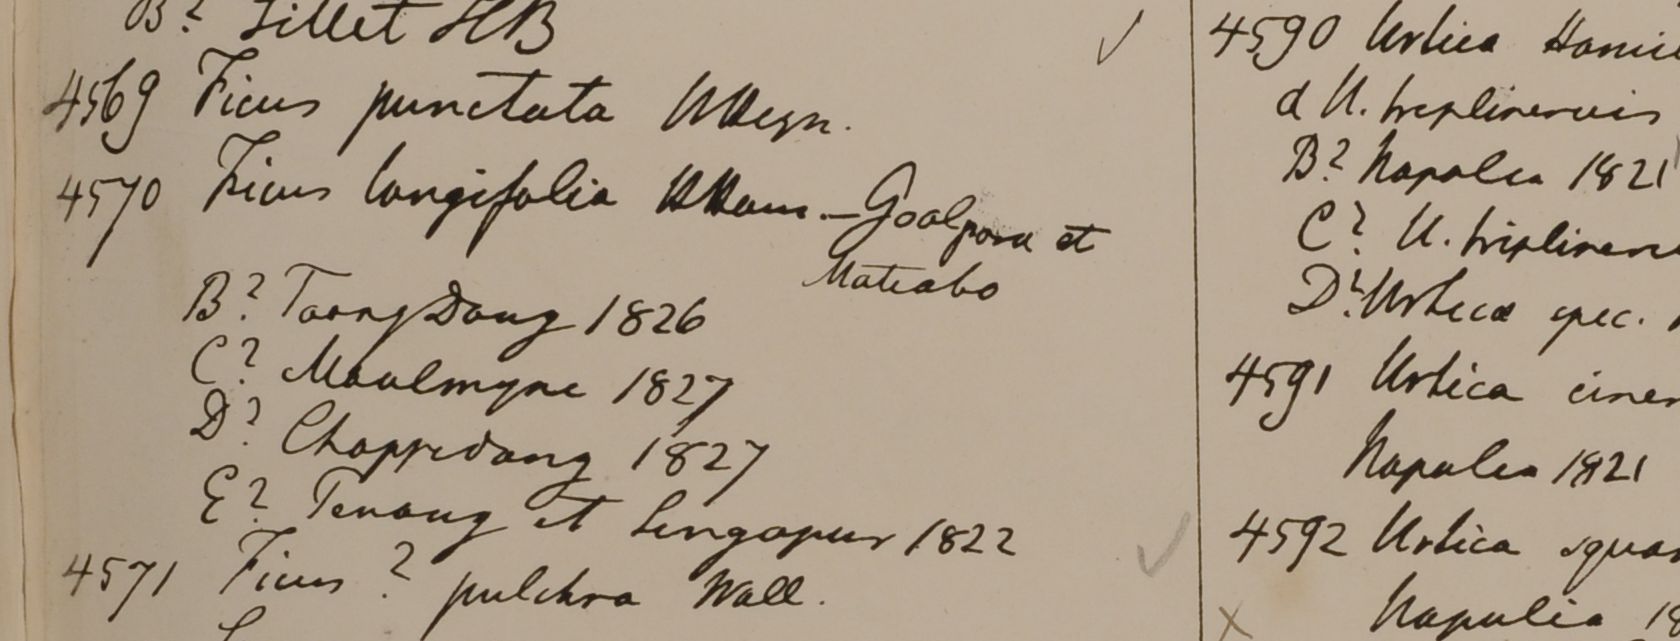 B? Sillet HB
4569 Ficus punctata
4570 Ficus longifolia HHam - Goalpara et
Mateabo
B? Toong Dong 1826
C? Moalmyne 1827
D? Chappedong 1827
E? Penang et Singapur 1822
4571 Ficus ? pulchra Wall.
4590 Urtica Hamil
d U. triplinervis
B? Napalia 1821
C? U. triplinerv
D? Urtica spec.
4591 Urtica ciner
Napalia 1821
4592 Urtica squam
Napalia